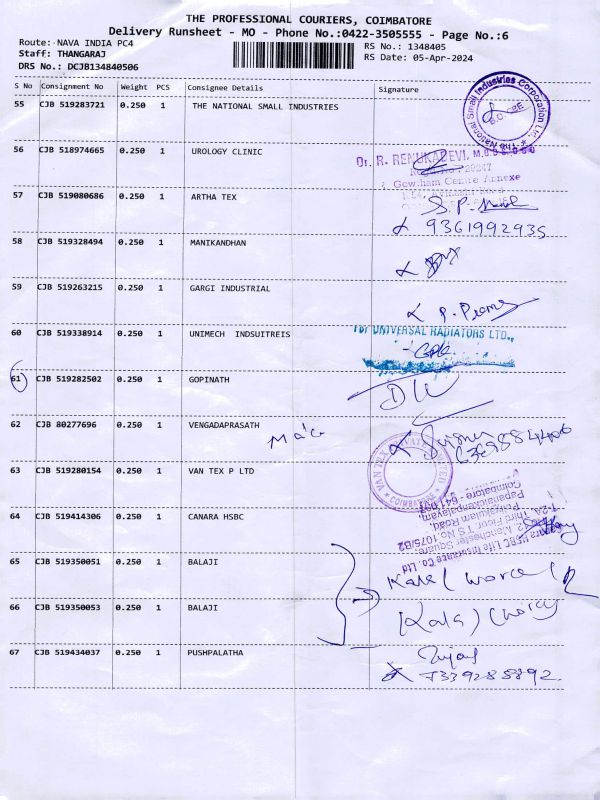 THE PROFESSIONAL COURIERS, COIMBATORE
Delivery Runsheet - MO - Phone No.:0422-3505555 - Page No.:6
Route: NAVA INDIA PC4
Staff: THANGARAJ
DRS No.: DCJB134840506
RS No.: 1348405
RS Date: 05-Apr-2024
S No Consignment No Weight PCS Consignee Details Signature
55 CJB 519283721 0.250 1 THE NATIONAL SMALL INDUSTRIES
The National Small Industries Corporation Ltd.
56 CJB 518974665 0.250 1 UROLOGY CLINIC
Dr. R. RENUKADEVI, M.B.B.S.
Gowtham Centre Annexe
57 CJB 519080686 0.250 1 ARTHA TEX
9361992935
58 CJB 519328494 0.250 1 MANIKANDHAN
59 CJB 519263215 0.250 1 GARGI INDUSTRIAL
60 CJB 519338914 0.250 1 UNIMECH INDSUITREIS
For UNIVERSAL RADIATORS LTD.,
61 CJB 519282502 0.250 1 GOPINATH
62 CJB 80277696 0.250 1 VENGADAPRASATH
63 CJB 519280154 0.250 1 VAN TEX P LTD
VAN TEX PRIVATE LIMITED
COIMBATORE
64 CJB 519414306 0.250 1 CANARA HSBC
Canara HSBC Life Insurance Co. Ltd
Manchester Square
Third Floor T.S No.1075/B2
Puliyakulam Road,
Papanaickenpalayam,
65 CJB 519350051 0.250 1 BALAJI
66 CJB 519350053 0.250 1 BALAJI
67 CJB 519434037 0.250 1 PUSHPALATHA
7339285892